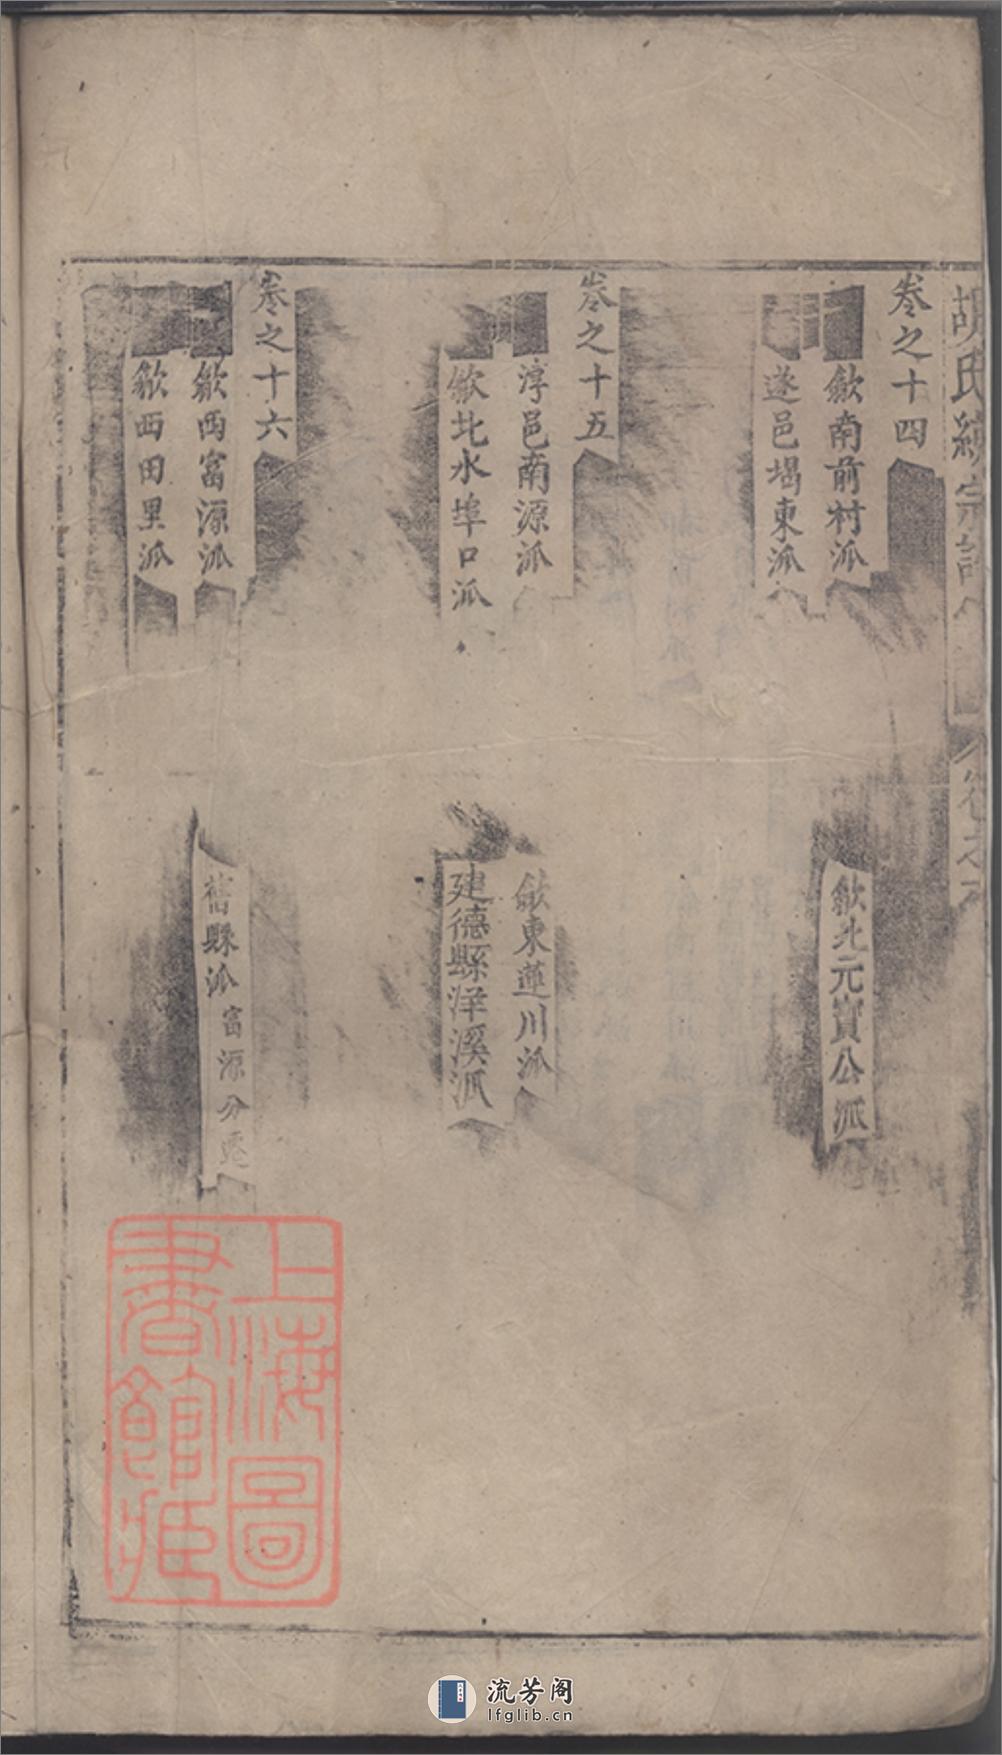 胡氏統宗譜
卷之十四
歙南前村派
歙北元寳公派
遂邑堨東派
卷之十五
淳邑南源派
歙東蓮川派
歙北水埠口派
建德縣洋溪派
卷之十六
歙西富源派
舊縣派富源分遷
歙西田里派
上海圖
書館藏
流芳阁
lfglib.cn